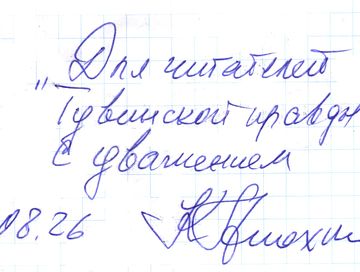 Для читателей
"Тувинской правды
С уважением
08.26